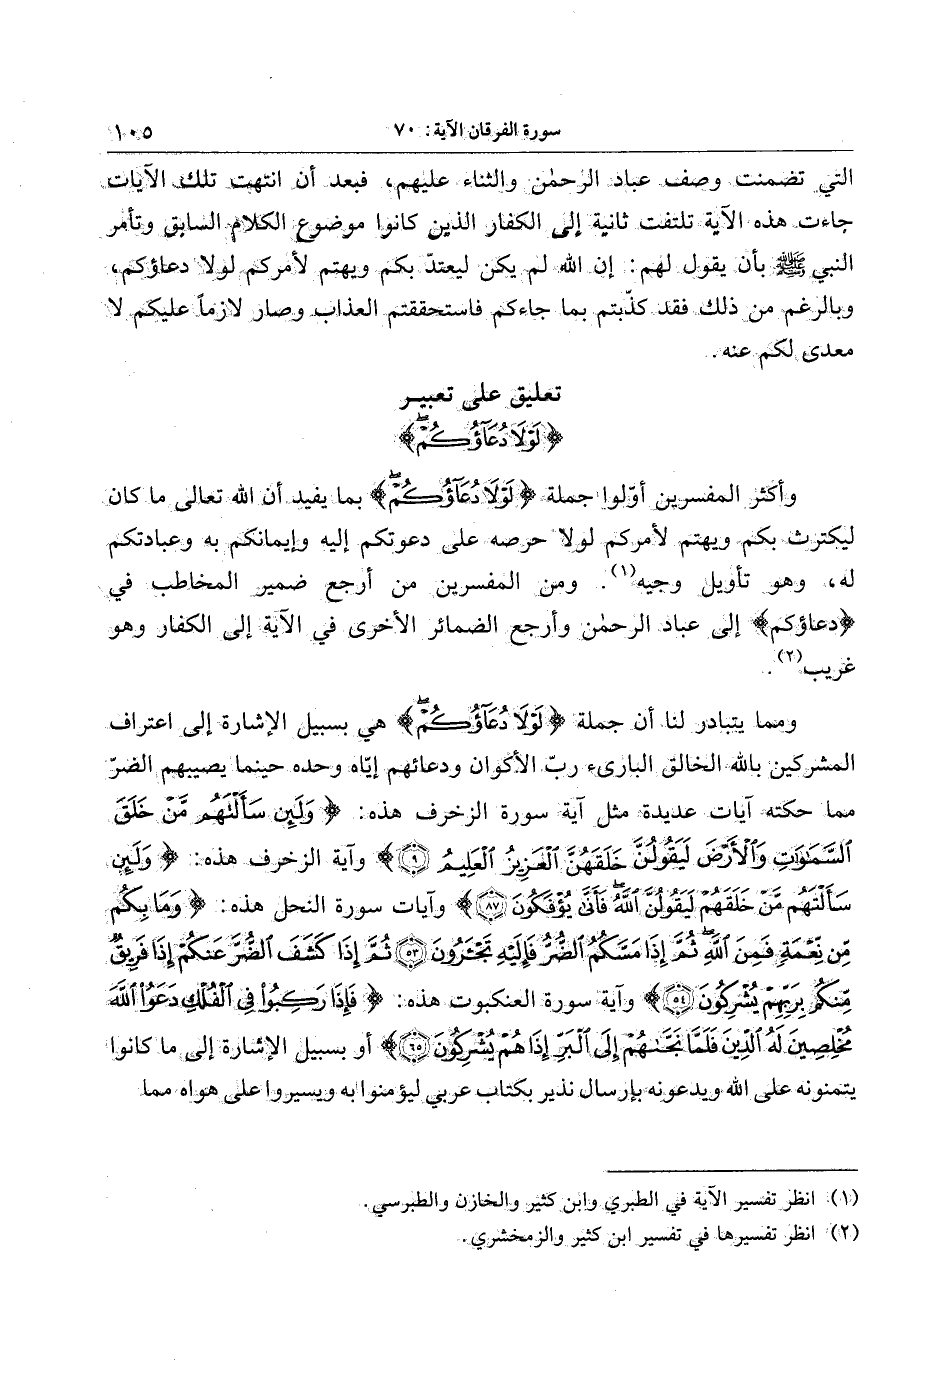 سورة الفرقان الآية: ٧٠ ١٠٥
التي تضمنت وصف عباد الرحمٰن والثناء عليهم، فبعد أن انتهت تلك الآيات
جاءت هذه الآية تلتفت ثانية إلى الكفار الذين كانوا موضوع الكلام السابق وتأمر
النبي ﷺ بأن يقول لهم: إن الله لم يكن ليعتدّ بكم ويهتم لأمركم لولا دعاؤكم،
وبالرغم من ذلك فقد كذّبتم بما جاءكم فاستحققتم العذاب وصار لازماً عليكم لا
معدى لكم عنه.
تعليق على تعبير
﴿لَوْلَا دُعَآؤُكُمْۖ﴾
وأكثر المفسرين أوّلوا جملة ﴿لَوْلَا دُعَآؤُكُمْۖ﴾ بما يفيد أن الله تعالى ما كان
ليكترث بكم ويهتم لأمركم لولا حرصه على دعوتكم إليه وإيمانكم به وعبادتكم
له، وهو تأويل وجيه(١). ومن المفسرين من أرجع ضمير المخاطب في
﴿دعاؤكم﴾ إلى عباد الرحمٰن وأرجع الضمائر الأخرى في الآية إلى الكفار وهو
غريب(٢).
ومما يتبادر لنا أن جملة ﴿لَوْلَا دُعَآؤُكُمْۖ﴾ هي بسبيل الإشارة إلى اعتراف
المشركين بالله الخالق البارىء ربّ الأكوان ودعائهم إيّاه وحده حينما يصيبهم الضرّ
مما حكته آيات عديدة مثل آية سورة الزخرف هذه: ﴿وَلَئِن سَأَلْتَهُم مَّنْ خَلَقَ
ٱلسَّمَٰوَٰتِ وَٱلْأَرْضَ لَيَقُولُنَّ خَلَقَهُنَّ ٱلْعَزِيزُ ٱلْعَلِيمُ ٩﴾ وآية الزخرف هذه: ﴿وَلَئِن
سَأَلْتَهُم مَّنْ خَلَقَهُمْ لَيَقُولُنَّ ٱللَّهُۖ فَأَنَّىٰ يُؤْفَكُونَ ٨٧﴾ وآيات سورة النحل هذه: ﴿وَمَا بِكُم
مِّن نِّعْمَةٍ فَمِنَ ٱللَّهِۖ ثُمَّ إِذَا مَسَّكُمُ ٱلضُّرُّ فَإِلَيْهِ تَجْـَٔرُونَ ٥٣ ثُمَّ إِذَا كَشَفَ ٱلضُّرَّ عَنكُمْ إِذَا فَرِيقٌ
مِّنكُم بِرَبِّهِمْ يُشْرِكُونَ ٥٤﴾ وآية سورة العنكبوت هذه: ﴿فَإِذَا رَكِبُوا۟ فِى ٱلْفُلْكِ دَعَوُا۟ ٱللَّهَ
مُخْلِصِينَ لَهُ ٱلدِّينَ فَلَمَّا نَجَّىٰهُمْ إِلَى ٱلْبَرِّ إِذَا هُمْ يُشْرِكُونَ ٦٥﴾ أو بسبيل الإشارة إلى ما كانوا
يتمنونه على الله ويدعونه بإرسال نذير بكتاب عربي ليؤمنوا به ويسيروا على هواه مما
(١) انظر تفسير الآية في الطبري وابن كثير والخازن والطبرسي.
(٢) انظر تفسيرها في تفسير ابن كثير والزمخشري.